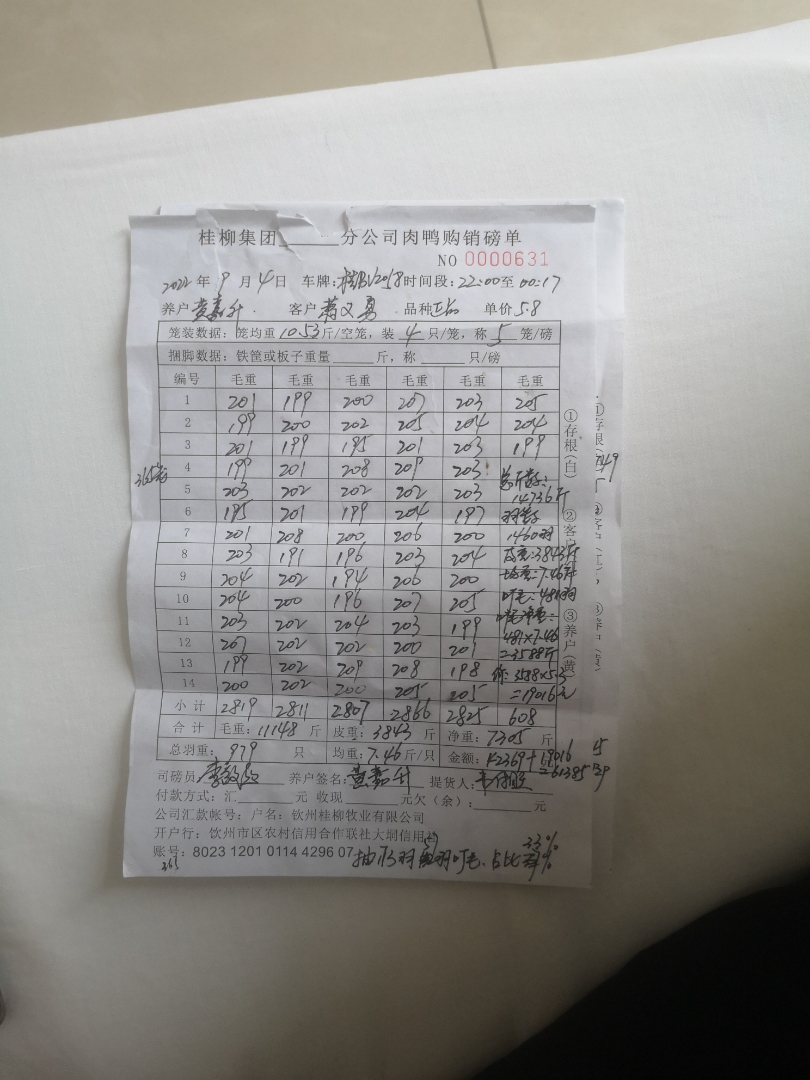 桂柳集团______分公司肉鸭购销磅单
NO 0000631
2022年9月4日 车牌: 时间段:22:00至00:17
养户 黄嘉升 客户 蒋义勇 品种 单价5.8
笼装数据:笼均重10.53斤/空笼,装4只/笼,称5笼/磅
捆脚数据:铁筐或板子重量______斤,称______只/磅
编号 毛重 毛重 毛重 毛重 毛重 毛重
1 201 199 200 207 203 205
2 199 200 202 205 204 204
3 201 199 195 201 203 199
4 199 201 208 209 203 总斤数:
5 203 202 202 202 203 14736斤
6 195 201 199 204 197 羽数
7 201 208 200 206 200 1460羽
8 203 191 196 203 204 皮重:3843斤
9 204 202 194 206 200 均重:7.46斤
10 204 200 196 207 205 叮毛:481羽
11 203 202 204 203 199 叮毛净重=
12 207 202 202 200 201 481×7.46
=3588斤
13 199 202 209 208 198 3588×5.3
14 200 202 200 205 205 =19016元
小计 2819 2811 2807 2866 2825 608
合计 毛重:11148斤 皮重:3843斤 净重:7305斤
总羽重:979只 均重:7.46斤/只 金额:42369+19016
=61385
司磅员: 养户签名:黄嘉升 提货人:
付款方式:汇______元 收现______元欠(余):______元
公司汇款帐号:户名:钦州桂柳牧业有限公司
开户行:饮州市区农村信用合作联社大垌信用社
账号:8023 1201 0114 4296 07
365
羽叮毛、占比33%
①存根(白)
②客户
③养户(黄)
365